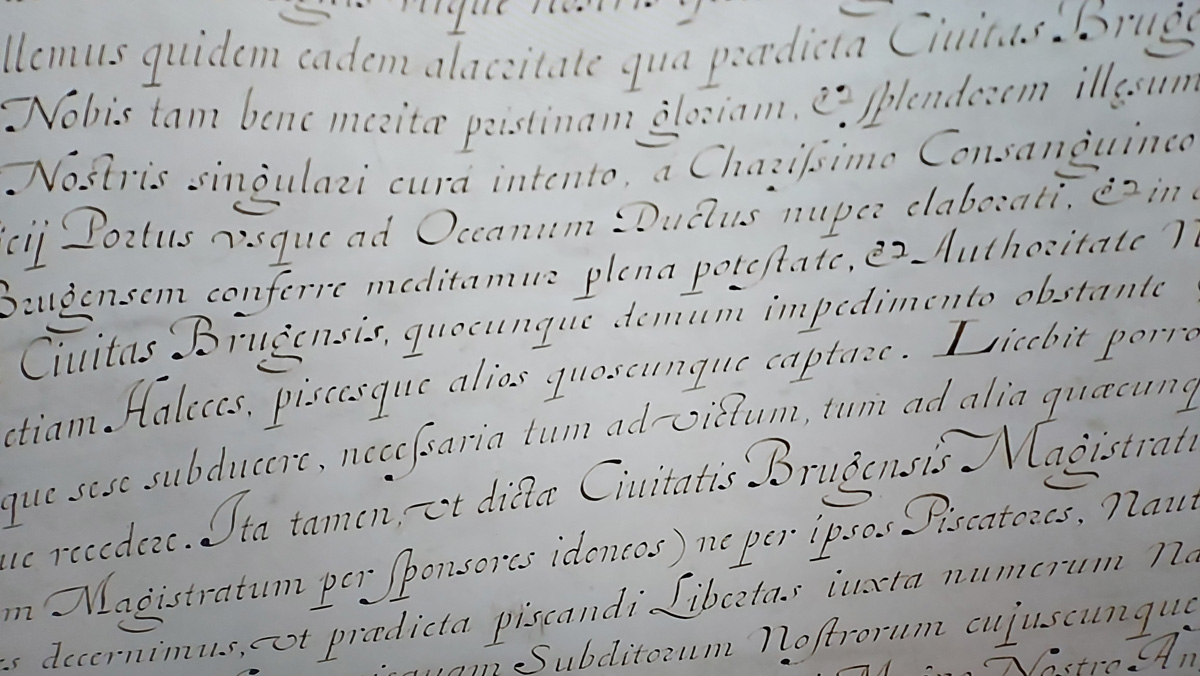 llemus quidem eadem alacritate qua prædicta Ciuitas Bruge
Nobis tam bene meritæ pristinam gloriam, & splendorem illęsum
Nostris singulari curâ intento, a Charissimo Consanguineo
icij Portus vsque ad Oceanum Ductus nuper elaborati, & in
Brugensem conferre meditamur plena potestate, & Authoritate N
Ciuitas Brugensis, quocunque demum impedimento obstante
etiam Haleces, piscesque alios quoscunque captare. Licebit porro
que sese subducere, necessaria tum ad victum, tum ad alia quæcunq
ue recedere. Ita tamen, vt dictæ Ciuitatis Brugensis Magistrati
m Magistratum per sponsores idoneos) ne per ipsos Piscatores, Naut
es decernimus, vt prædicta piscandi Libertas iuxta numerum Na
quam Subditorum Nostrorum cujuscunque
Nostro An